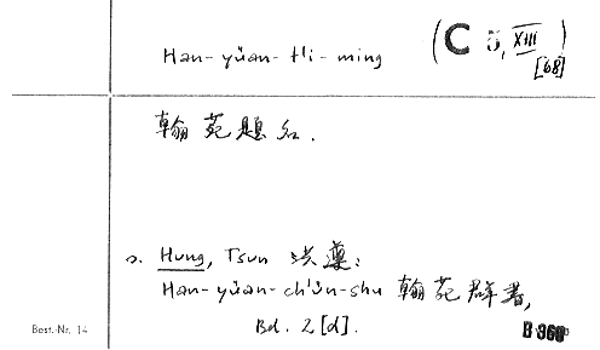 Han-yüan-t'i-ming
(C 5, XIII)
[68]
翰苑題名.
s. Hung, Tsun 洪遵:
Han-yüan-ch'ün-shu 翰苑群書,
Bd. 2[d].
Best.-Nr. 14
B 368